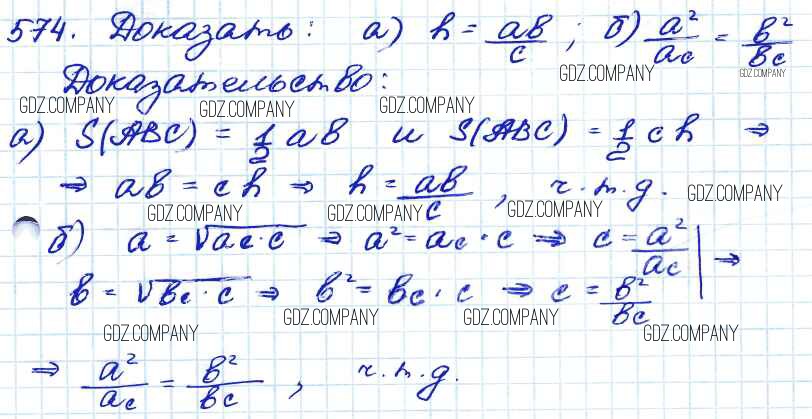 574. Доказать: а) h = ab/c ; б) a²/ac = b²/bc
GDZ.COMPANY GDZ.COMPANY
Доказательство:
GDZ.COMPANY GDZ.COMPANY GDZ.COMPANY
а) S(ABC) = 1/2 ab и S(ABC) = 1/2 ch ⇒
⇒ ab = ch ⇒ h = ab/c , ч.т.д. GDZ.COMPANY
GDZ.COMPANY GDZ.COMPANY GDZ.COMPANY
б) a = √ac·c ⇒ a² = ac·c ⇒ c = a²/ac
b = √bc·c ⇒ b² = bc·c ⇒ c = b²/bc | ⇒
GDZ.COMPANY GDZ.COMPANY GDZ.COMPANY GDZ.COMPANY
⇒ a²/ac = b²/bc , ч.т.д.